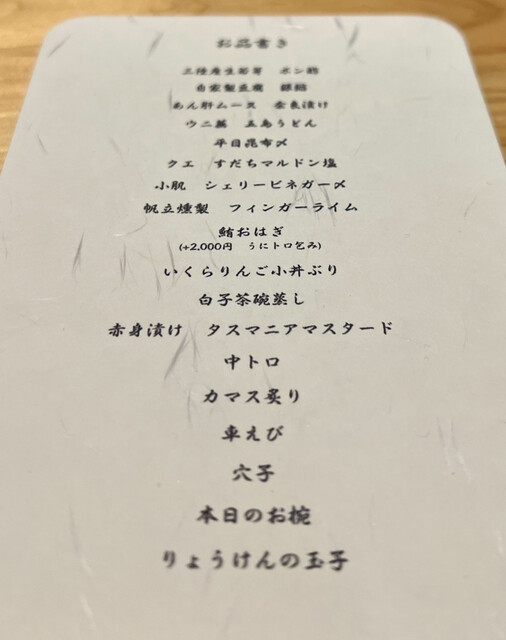 お品書き
三陸産生若芽 ポン酢
自家製豆腐 銀餡
あん肝ムース 奈良漬け
ウニ蕎 五島うどん
平目昆布〆
クエ すだちマルドン塩
小肌 シェリービネガー〆
帆立燻製 フィンガーライム
鮪おはぎ
(+2,000円 うにトロ包み)
いくらりんご小丼ぶり
白子茶碗蒸し
赤身漬け タスマニアマスタード
中トロ
カマス炙り
車えび
穴子
本日のお椀
りょうけんの玉子